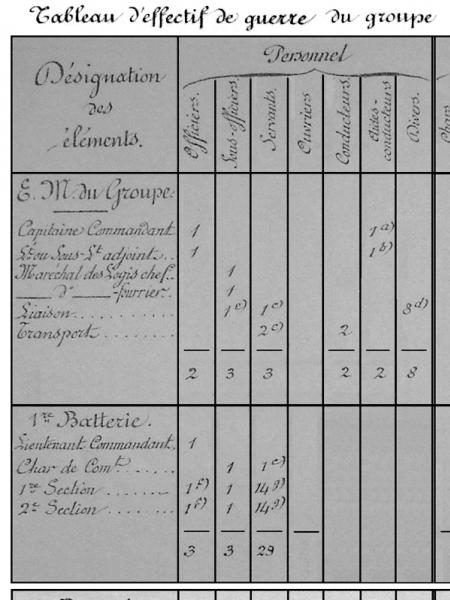 Tableau d'effectif de guerre du groupe
Désignation des éléments.
Personnel
Officiers.
Sous-officiers.
Servants.
Ouvriers
Conducteurs.
Élèves-conducteurs
Divers.
Chars
E. M. du Groupe:
Capitaine Commandant 1 1 a)
Lt ou Sous-Lt adjoint.. 1 1 b)
Maréchal des Logis chef. 1
____ d° ____-fourrier. 1
Liaison.......... 1 c) 1 c) 8 d)
Transport....... 2 c) 2
2 3 3 2 2 8
1re Batterie.
Lieutenant Commandant. 1
Char de Comt...... 1 1 e)
1re Section ....... 1 f) 1 14 g)
2e Section ........ 1 f) 1 14 g)
3 3 29